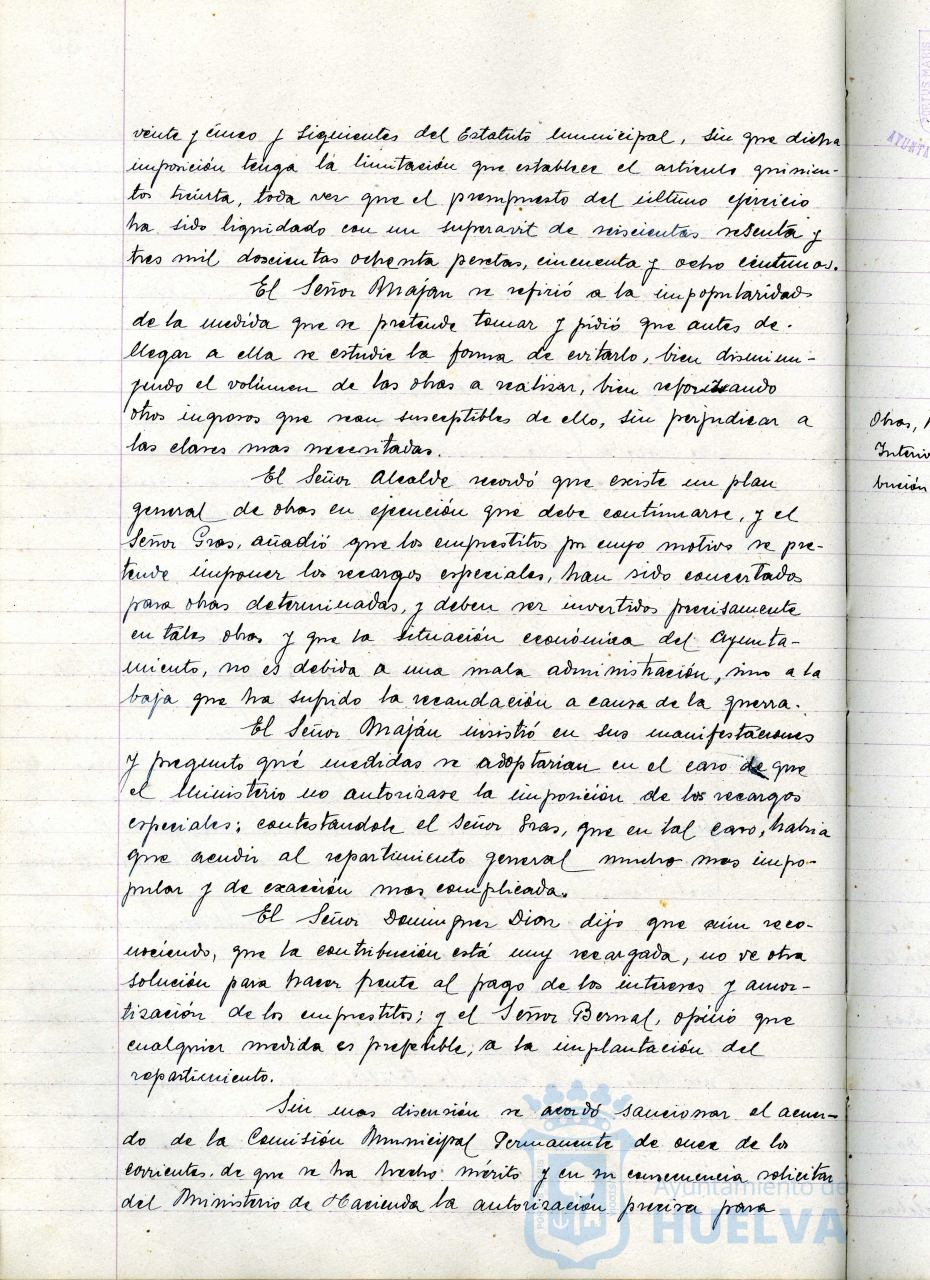 veinte y cinco y siguientes del Estatuto Municipal, sin que dicha
imposición tenga la limitación que establece el artículo quinien-
tos treinta, toda vez que el presupuesto del último ejercicio
ha sido liquidado con un superavit de seiscientas sesenta y
tres mil doscientas ochenta pesetas, cincuenta y ocho centimos.
El Señor Maján se refirió a la impopularidad
de la medida que se pretende tomar y pidió que antes de
llegar a ella se estudie la forma de evitarlo, bien disminu-
yendo el volúmen de las obras a realizar, bien reforzando
otros ingresos que sean susceptibles de ello, sin perjudicar a
las clases mas necesitadas.
El Señor Alcalde recordó que existe un plan
general de obras en ejecución que debe continuarse, y el
Señor Gras, añadió que los emprestitos por cuyo motivo se pre-
tende imponer los recargos especiales, han sido concertados
para obras determinadas, y deben ser invertidos precisamente
en tales obras y que la situación económica del Ayunta-
miento, no es debida a una mala administración, sino a la
baja que ha sufrido la recaudación a causa de la guerra.
El Señor Maján insistió en sus manifestaciones
y preguntó qué medidas se adoptarian en el caso de que
el Ministerio no autorizase la imposición de los recargos
especiales; contestandole el Señor Gras, que en tal caso, habria
que acudir al repartimiento general mucho mas impo-
pular y de exacción mas complicada.
El Señor Dominguez Diaz dijo que aún reco-
nociendo, que la contribución está muy recargada, no ve otra
solución para hacer frente al pago de los intereses y amor-
tización de los emprestitos; y el Señor Bernal, opinó que
cualquier medida es preferible, a la implantación del
repartimiento.
Sin mas discusión se acordó sancionar el acuer-
do de la Comisión Municipal Permanente de once de los
corrientes, de que se ha hecho mérito y en su consecuencia solicitar
del Ministerio de Hacienda la autorización precisa para
Obras,
Interio
bución
Ayuntamiento de
HUELVA